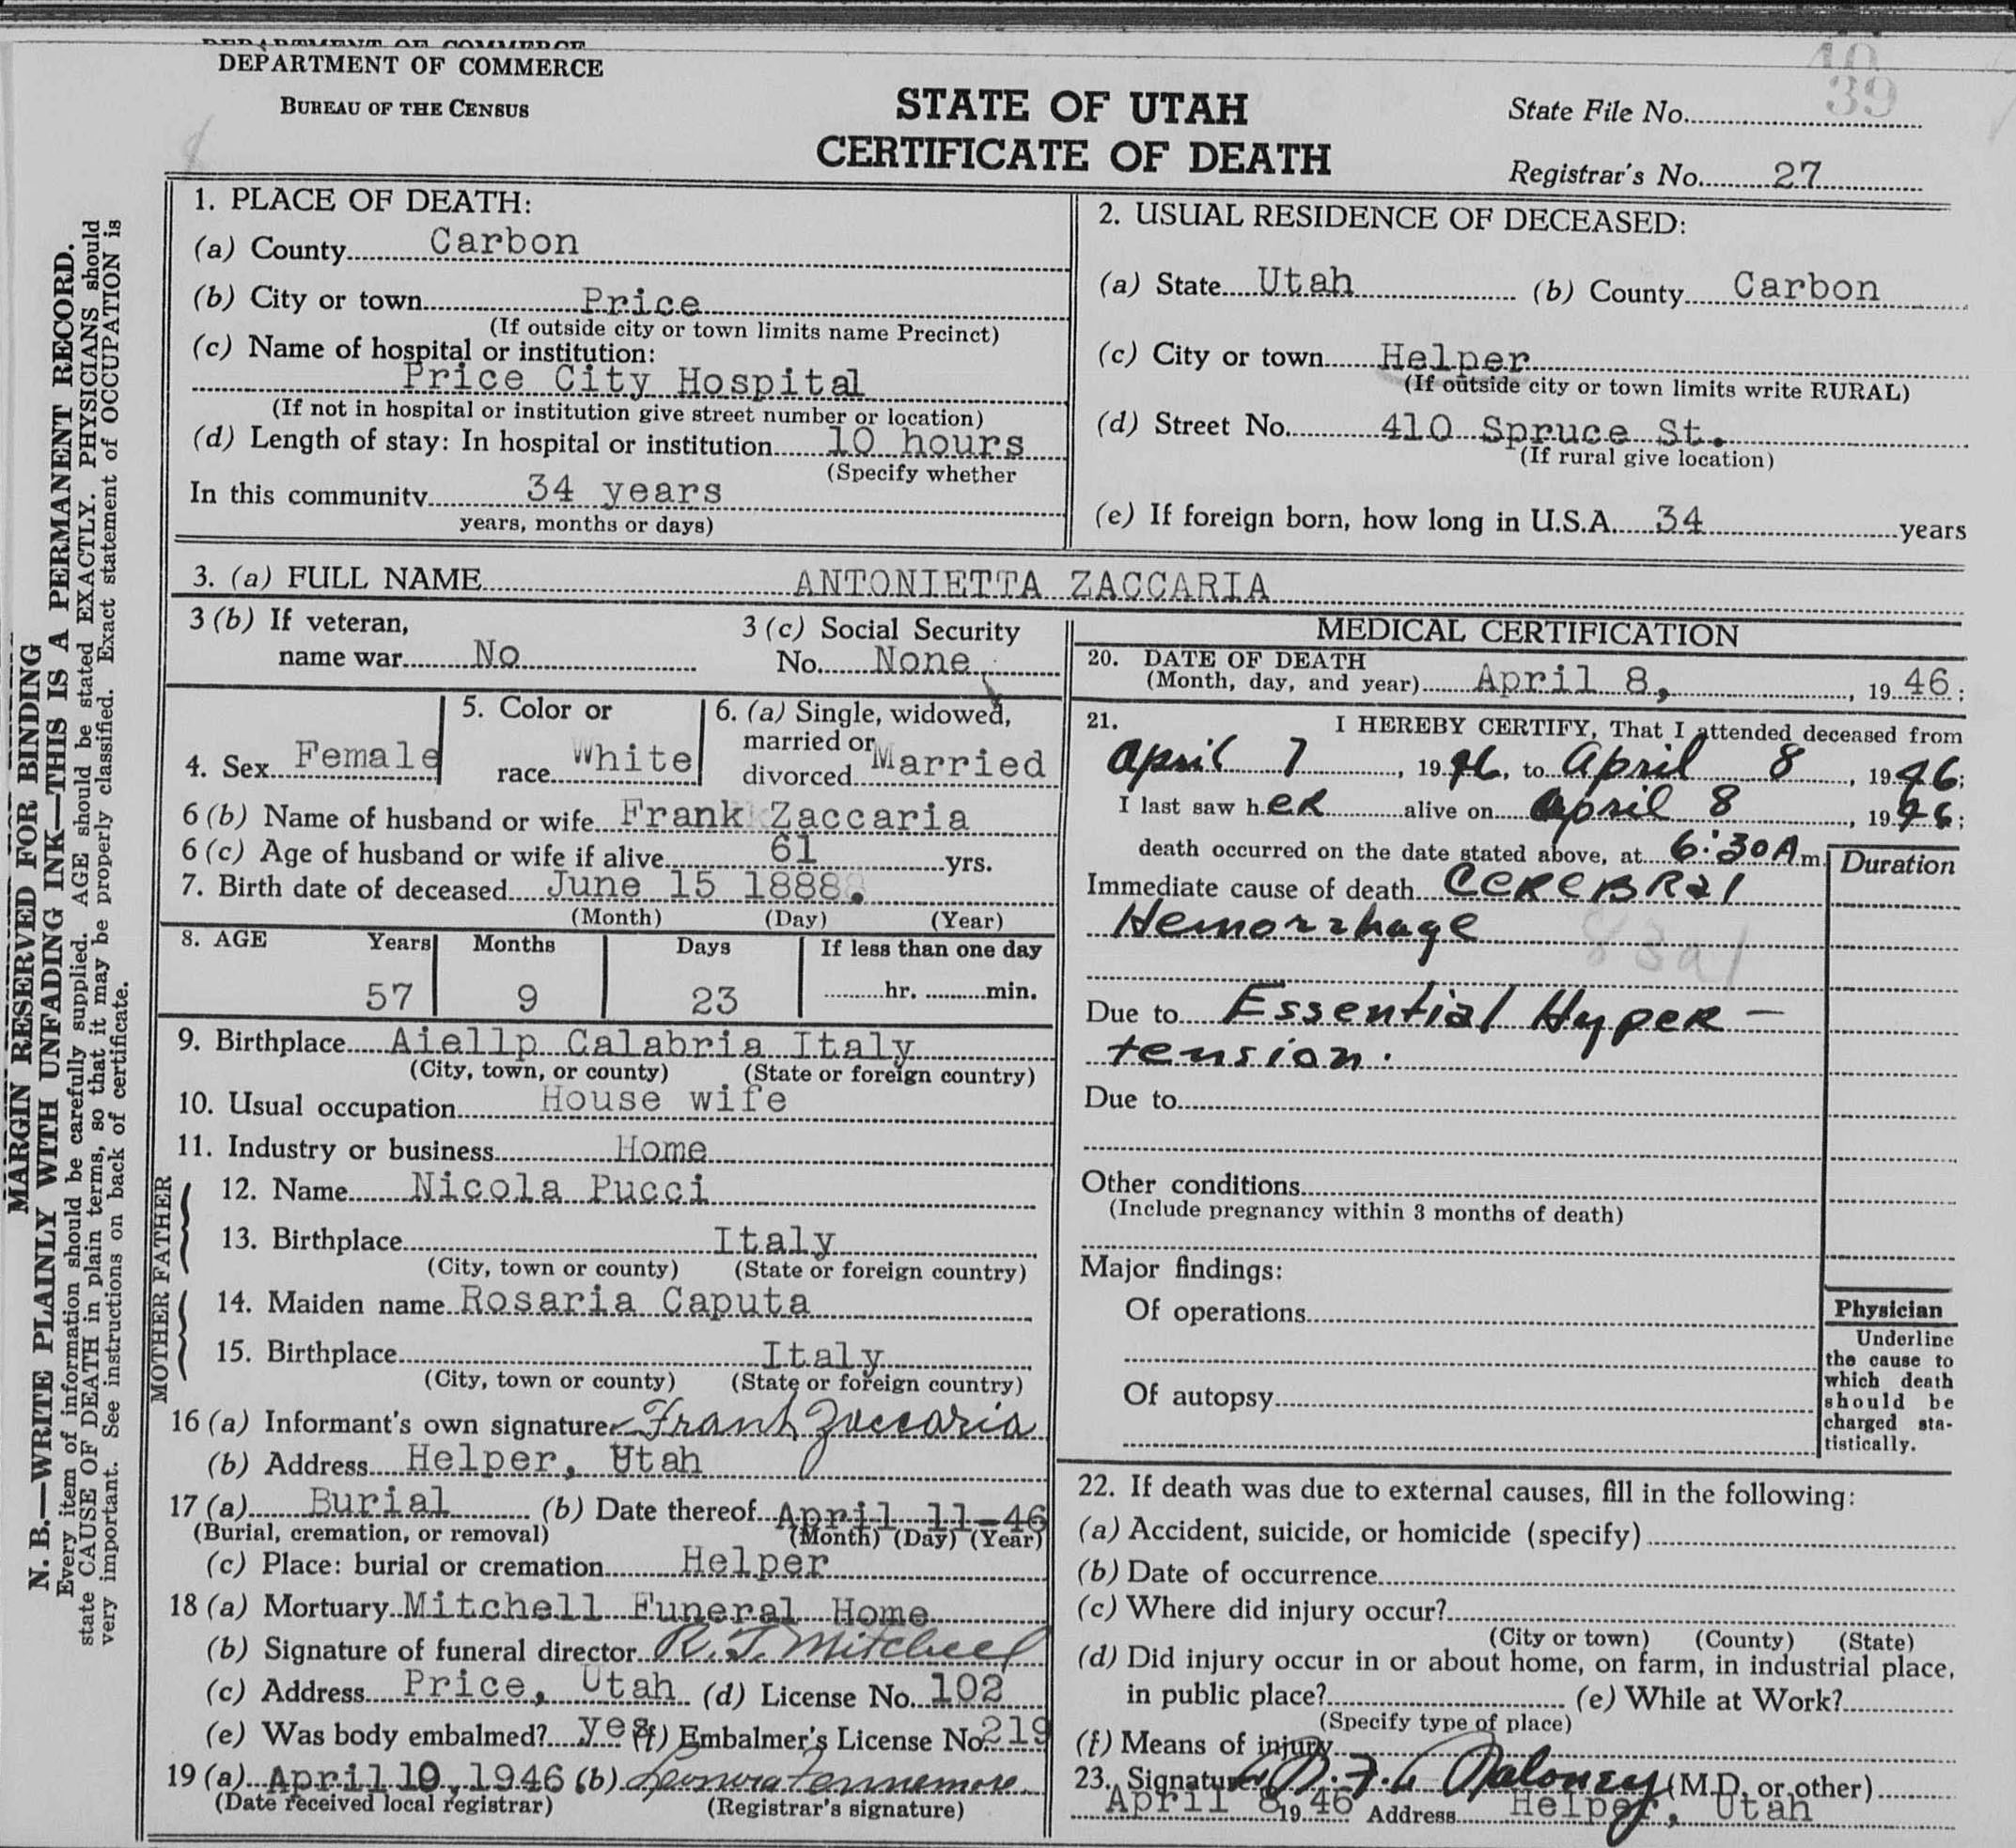 DEPARTMENT OF COMMERCE
DEPARTMENT OF COMMERCE
BUREAU OF THE CENSUS
STATE OF UTAH
CERTIFICATE OF DEATH
State File No. 39
Registrar's No. 27
MARGIN RESERVED FOR BINDING
N. B.—WRITE PLAINLY WITH UNFADING INK—THIS IS A PERMANENT RECORD.
Every item of information should be carefully supplied. AGE should be stated EXACTLY. PHYSICIANS should
state CAUSE OF DEATH in plain terms, so that it may be properly classified. Exact statement of OCCUPATION is
very important. See instructions on back of certificate.
1. PLACE OF DEATH:
(a) County Carbon
(b) City or town Price
(If outside city or town limits name Precinct)
(c) Name of hospital or institution:
Price City Hospital
(If not in hospital or institution give street number or location)
(d) Length of stay: In hospital or institution 10 hours
(Specify whether
In this community 34 years
years, months or days)
2. USUAL RESIDENCE OF DECEASED:
(a) State Utah (b) County Carbon
(c) City or town Helper
(If outside city or town limits write RURAL)
(d) Street No. 410 Spruce St.
(If rural give location)
(e) If foreign born, how long in U.S.A. 34 years
3. (a) FULL NAME ANTONIETTA ZACCARIA
3 (b) If veteran,
name war No
3 (c) Social Security
No. None
4. Sex Female
5. Color or
race White
6. (a) Single, widowed,
married or
divorced Married
6 (b) Name of husband or wife Frank Zaccaria
6 (c) Age of husband or wife if alive 61 yrs.
7. Birth date of deceased June 15 1888.
(Month) (Day) (Year)
8. AGE Years Months Days If less than one day
57 9 23 hr. min.
9. Birthplace Aiellp Calabria Italy
(City, town, or county) (State or foreign country)
10. Usual occupation House wife
11. Industry or business Home
FATHER
12. Name Nicola Pucci
13. Birthplace Italy
(City, town or county) (State or foreign country)
MOTHER
14. Maiden name Rosaria Caputa
15. Birthplace Italy
(City, town or county) (State or foreign country)
16 (a) Informant's own signature Frank Zaccaria
(b) Address Helper, Utah
17 (a) Burial (b) Date thereof April 11-46
(Burial, cremation, or removal) (Month) (Day) (Year)
(c) Place: burial or cremation Helper
18 (a) Mortuary Mitchell Funeral Home
(b) Signature of funeral director R. J. Mitchell
(c) Address Price, Utah (d) License No. 102
(e) Was body embalmed? yes (f) Embalmer's License No. 219
19 (a) April 10, 1946 (b)
(Date received local registrar) (Registrar's signature)
MEDICAL CERTIFICATION
20. DATE OF DEATH
(Month, day, and year) April 8, , 19 46;
21. I HEREBY CERTIFY, That I attended deceased from
April 7, 1946, to April 8, 1946;
I last saw her alive on April 8, 1946;
death occurred on the date stated above, at 6:30 A m.
Duration
Immediate cause of death Cerebral
Hemorrhage
83a1
Due to Essential Hyper-
tension.
Due to
Other conditions
(Include pregnancy within 3 months of death)
Major findings:
Of operations
Of autopsy
Physician
Underline
the cause to
which death
should be
charged sta-
tistically.
22. If death was due to external causes, fill in the following:
(a) Accident, suicide, or homicide (specify)
(b) Date of occurrence
(c) Where did injury occur?
(City or town) (County) (State)
(d) Did injury occur in or about home, on farm, in industrial place,
in public place? (e) While at Work?
(Specify type of place)
(f) Means of injury
23. Signature Maloney (M.D. or other)
April 8 19 46 Address Helper, Utah